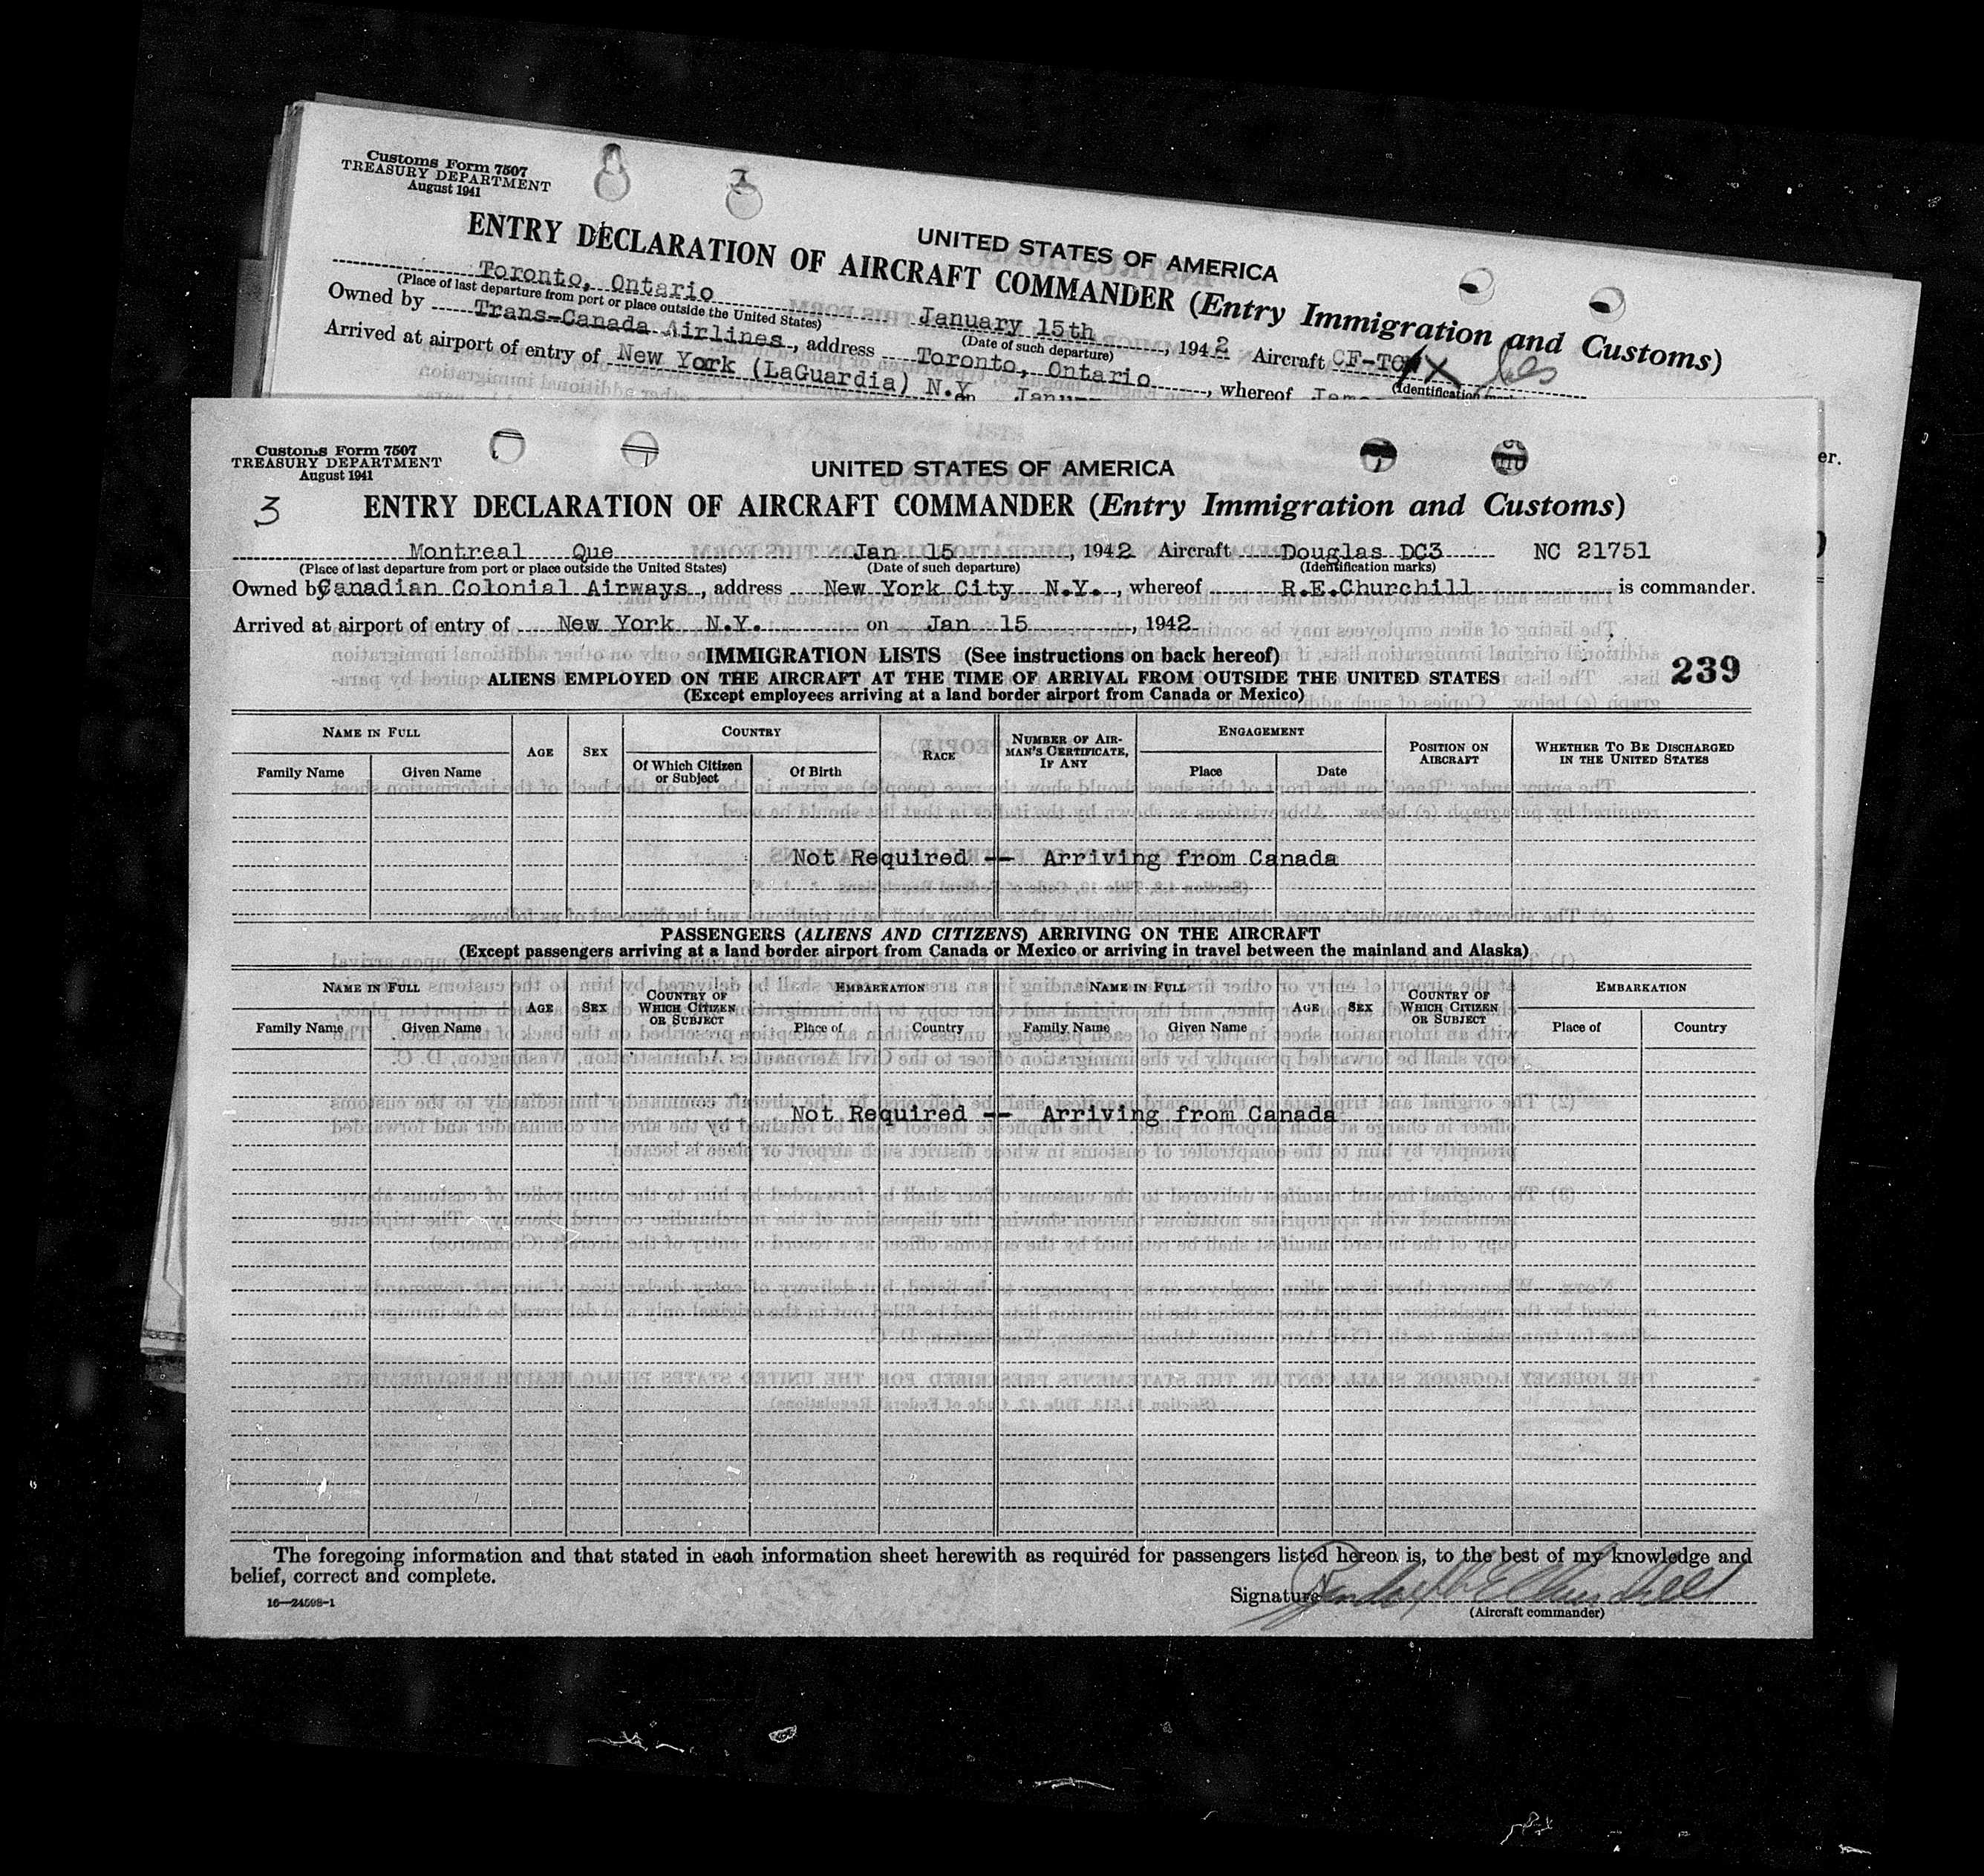 Customs Form 7507
TREASURY DEPARTMENT
August 1941
UNITED STATES OF AMERICA
ENTRY DECLARATION OF AIRCRAFT COMMANDER (Entry Immigration and Customs)
Toronto, Ontario January 15th, 1942 Aircraft CF-TC X
(Place of last departure from port or place outside the United States) (Date of such departure) (Identification
Owned by Trans-Canada Airlines, address Toronto, Ontario, whereof
Arrived at airport of entry of New York (LaGuardia) N.Y.
er.
Customs Form 7507
TREASURY DEPARTMENT
August 1941
3
UNITED STATES OF AMERICA
ENTRY DECLARATION OF AIRCRAFT COMMANDER (Entry Immigration and Customs)
Montreal Que Jan 15, 1942 Aircraft Douglas DC3 NC 21751
(Place of last departure from port or place outside the United States) (Date of such departure) (Identification marks)
Owned by Canadian Colonial Airways, address New York City N.Y., whereof R.E.Churchill is commander.
Arrived at airport of entry of New York N.Y. on Jan 15, 1942
IMMIGRATION LISTS (See instructions on back hereof)
239
ALIENS EMPLOYED ON THE AIRCRAFT AT THE TIME OF ARRIVAL FROM OUTSIDE THE UNITED STATES
(Except employees arriving at a land border airport from Canada or Mexico)
NAME IN FULL AGE SEX COUNTRY RACE NUMBER OF AIRMAN'S CERTIFICATE, IF ANY ENGAGEMENT POSITION ON AIRCRAFT WHETHER TO BE DISCHARGED IN THE UNITED STATES
Family Name Given Name Of Which Citizen or Subject Of Birth Place Date
Not Required -- Arriving from Canada
PASSENGERS (ALIENS AND CITIZENS) ARRIVING ON THE AIRCRAFT
(Except passengers arriving at a land border airport from Canada or Mexico or arriving in travel between the mainland and Alaska)
NAME IN FULL AGE SEX COUNTRY OF WHICH CITIZEN OR SUBJECT EMBARKATION NAME IN FULL AGE SEX COUNTRY OF WHICH CITIZEN OR SUBJECT EMBARKATION
Family Name Given Name Place of Country Family Name Given Name Place of Country
Not Required -- Arriving from Canada
The foregoing information and that stated in each information sheet herewith as required for passengers listed hereon is, to the best of my knowledge and
belief, correct and complete.
Signature Randolph E Churchill
16—24598-1
(Aircraft commander)